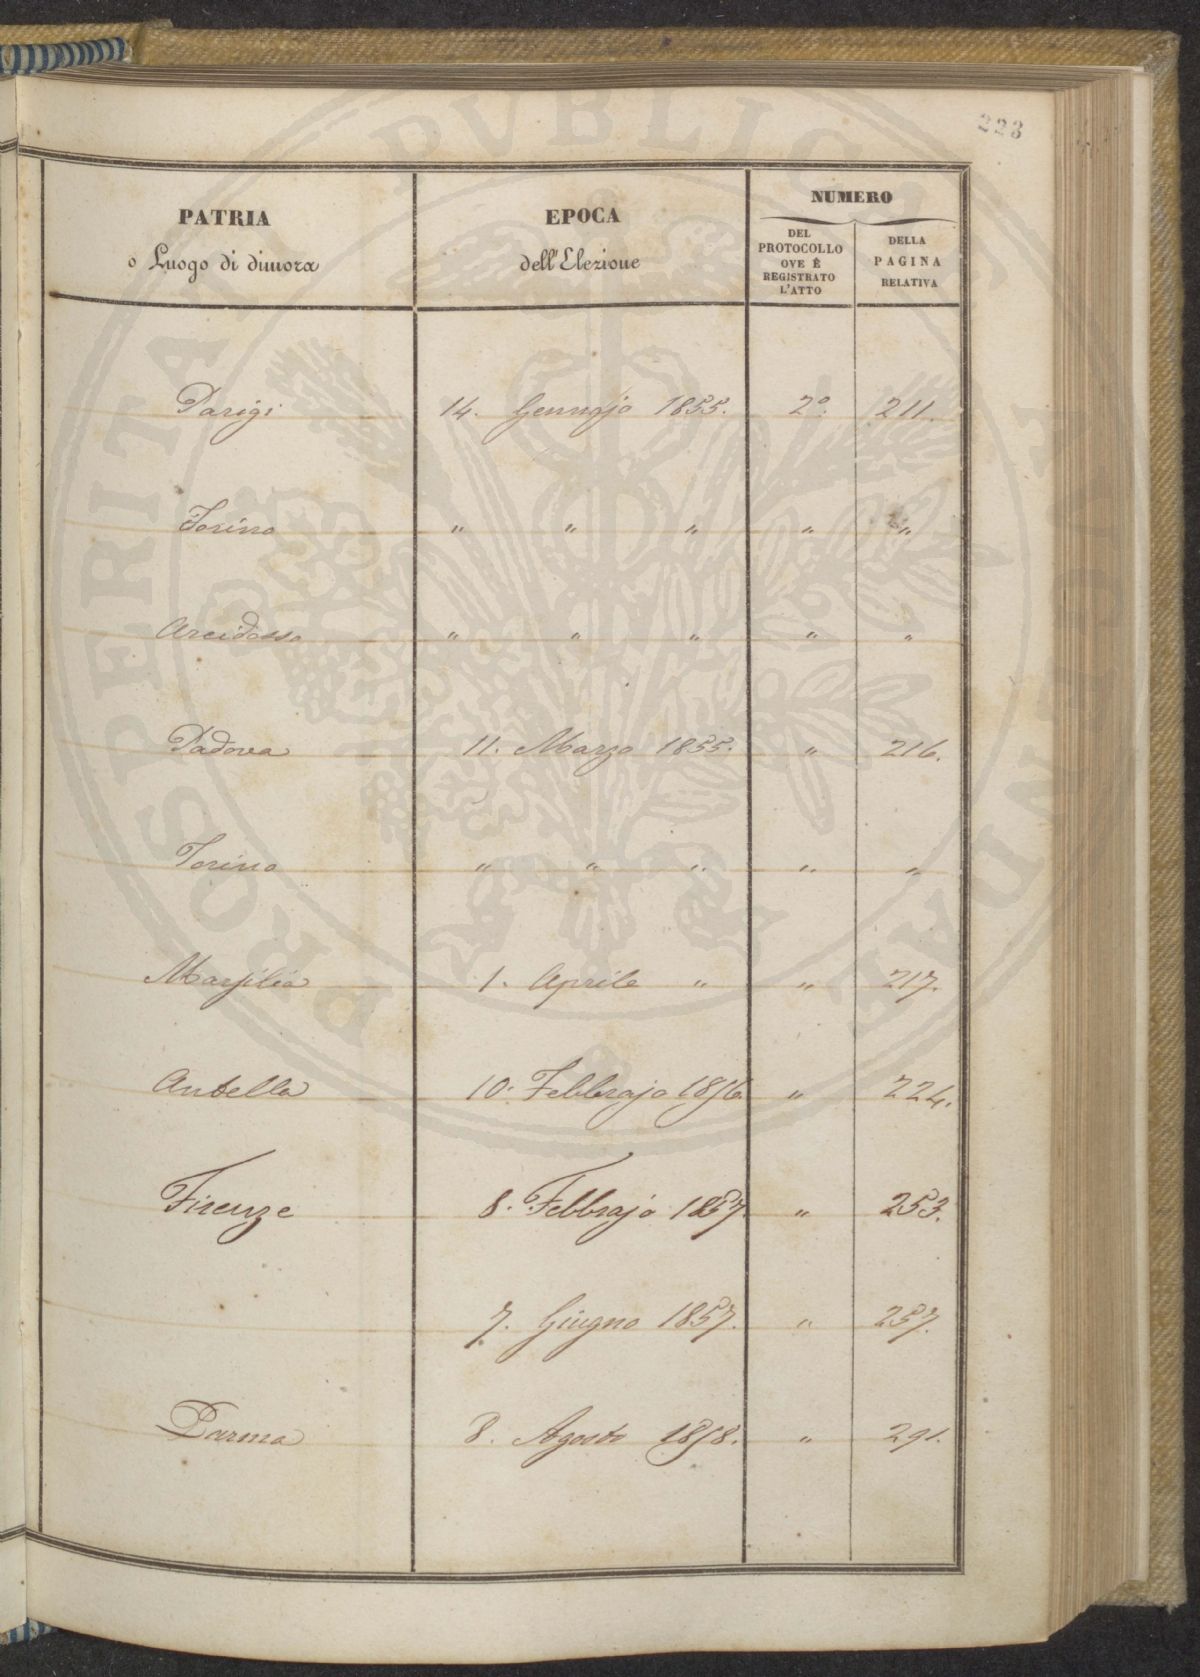 223
PATRIA
o Luogo di dimora
EPOCA
dell'Elezione
NUMERO
DEL
PROTOCOLLO
OVE È
REGISTRATO
L'ATTO
DELLA
PAGINA
RELATIVA
Parigi 14. Gennajo 1855. 2º. 211.
Torino " " " " "
Arcidosso " " " " "
Padova 11. Marzo 1855. " 216.
Torino " " " " "
Marsilia 1. Aprile " " 217.
Antella 10. Febbrajo 1856 " 224.
Firenze 8. Febbrajo 1857. " 253.
7. Giugno 1857. " 257.
Parma 8. Agosto 1858. " 291.
PROSPERITÀ PVBLICA